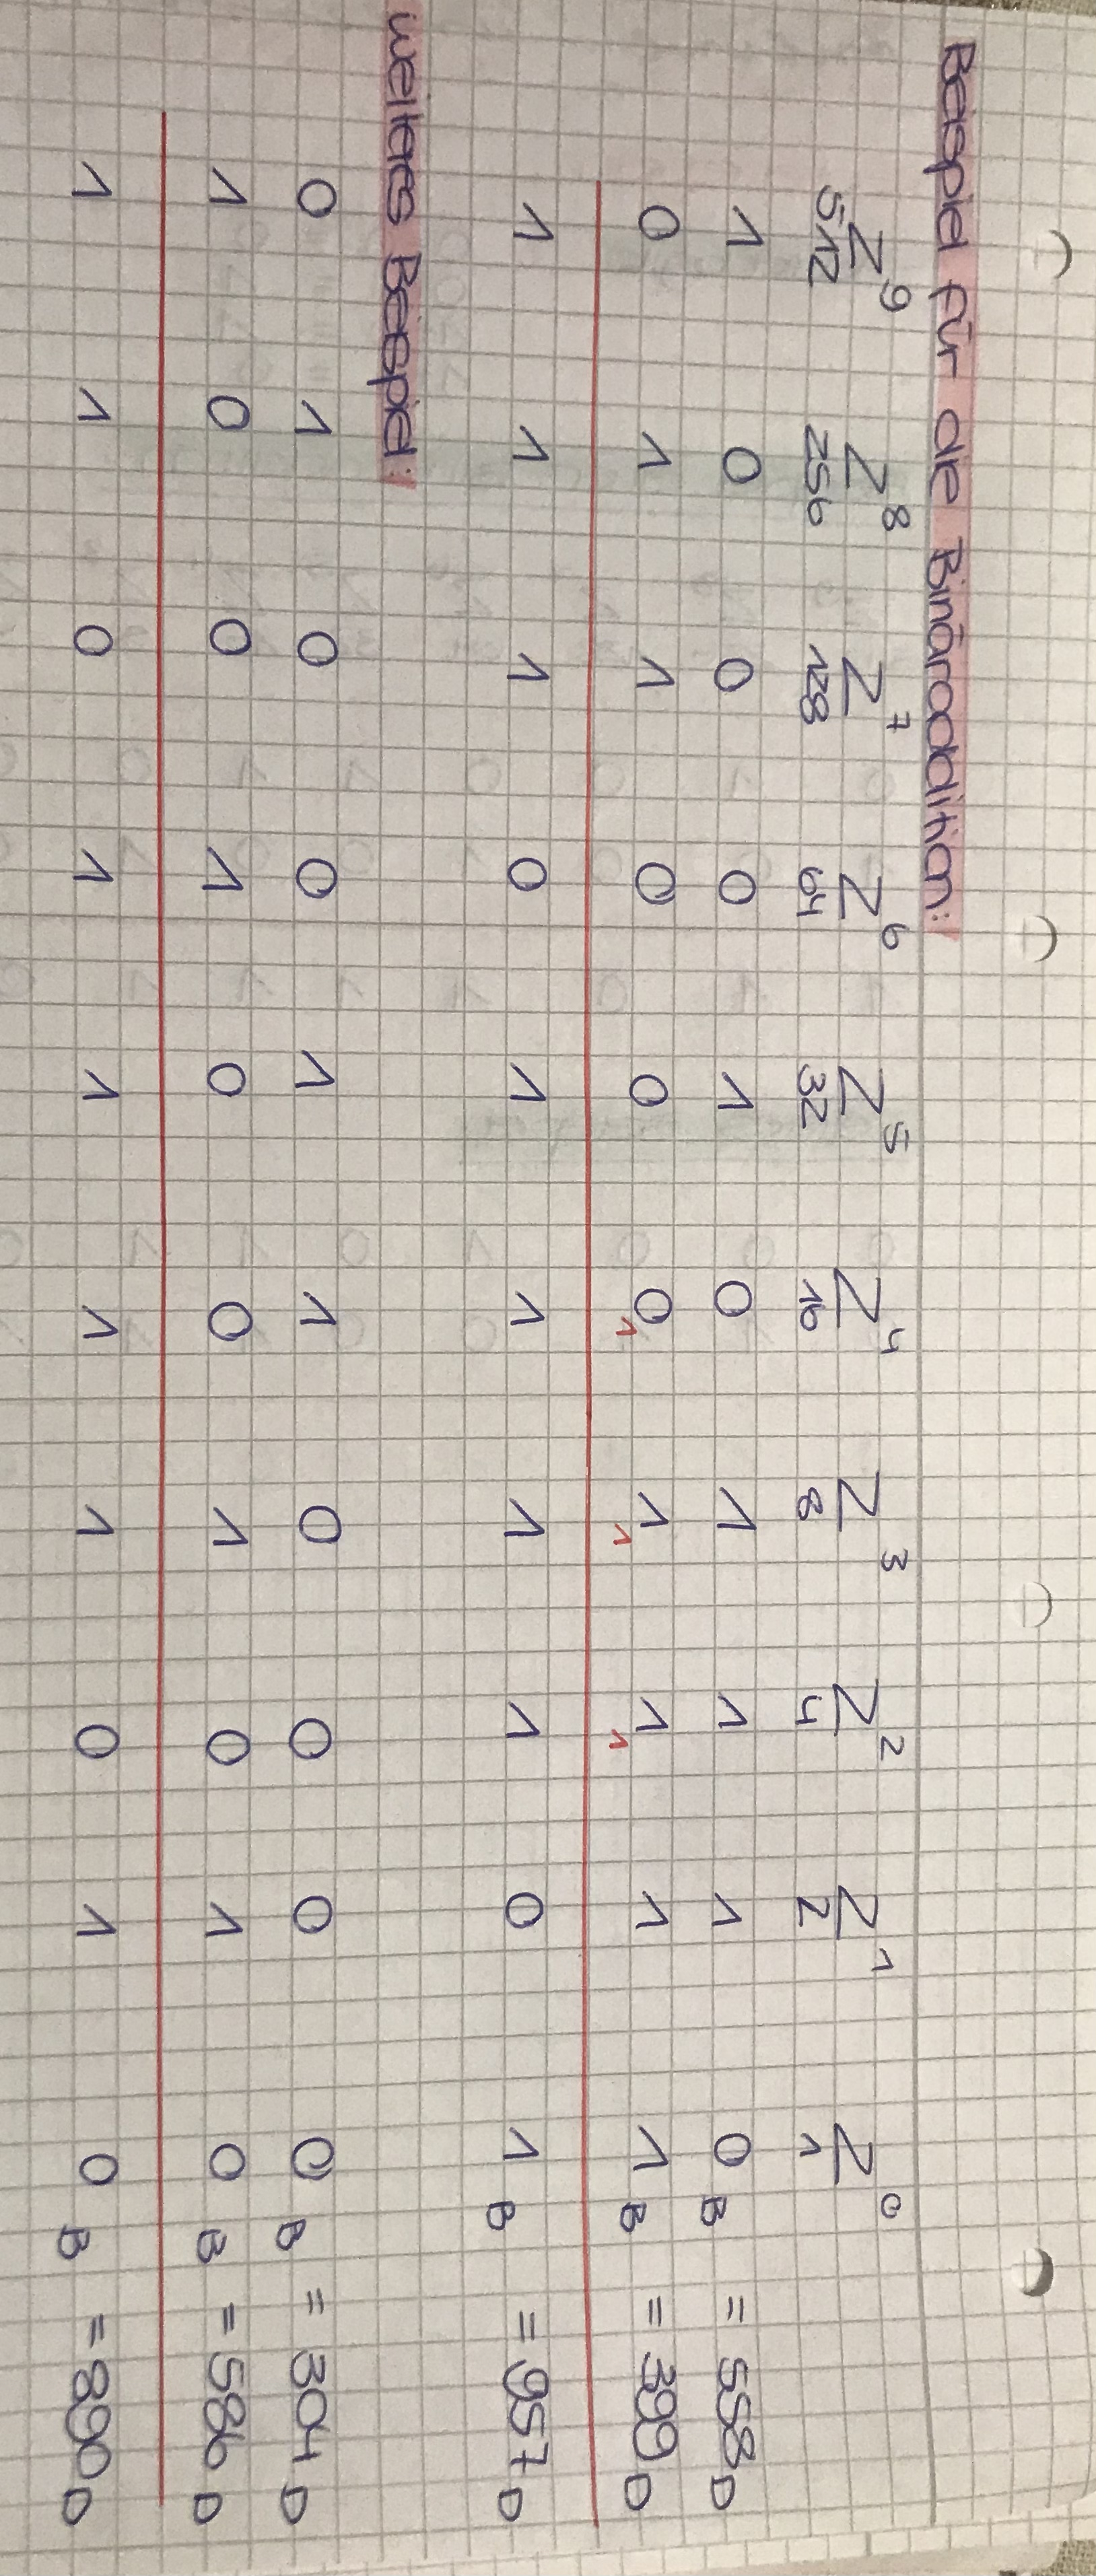 Beispiel für die Binäraddition:
2⁹ 2⁸ 2⁷ 2⁶ 2⁵ 2⁴ 2³ 2² 2¹ 2⁰
512 256 128 64 32 16 8 4 2 1
1 0 0 0 1 0 1 1 1 0 B = 558 D
0 1 1 0 0 0 1 1 1 1 B = 399 D
1 1 1
1 1 1 0 1 1 1 1 0 1 B = 957 D
weiteres Beispiel:
0 1 0 0 1 1 0 0 0 0 B = 304 D
1 0 0 1 0 0 1 0 1 0 B = 586 D
1 1 0 1 1 1 1 0 1 0 B = 890 D